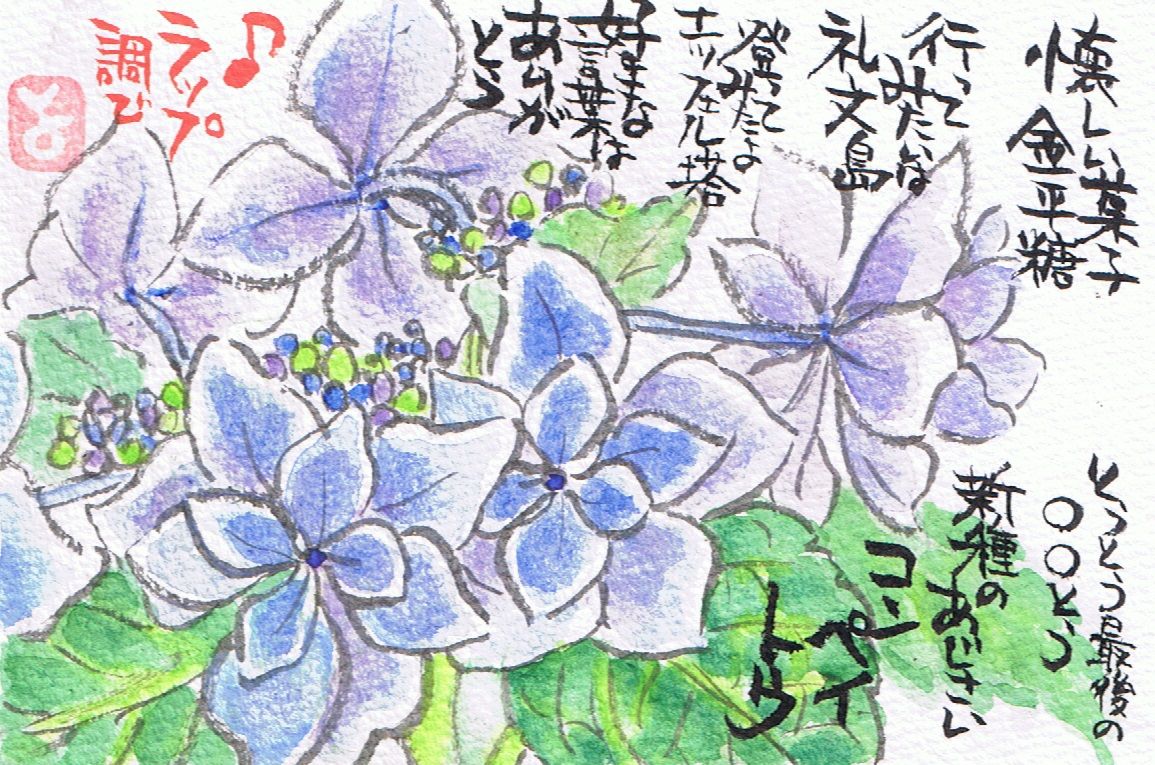 懐しい菓子
金平糖
行って
みたいな
礼文島
登って
みたいよ
エッフェル塔
好きな
言葉は
ありが
とう
♪
ラップ
調で
とよ
とうとう最後の
〇〇とう
新種の
あじさい
コン
ペイ
トウ